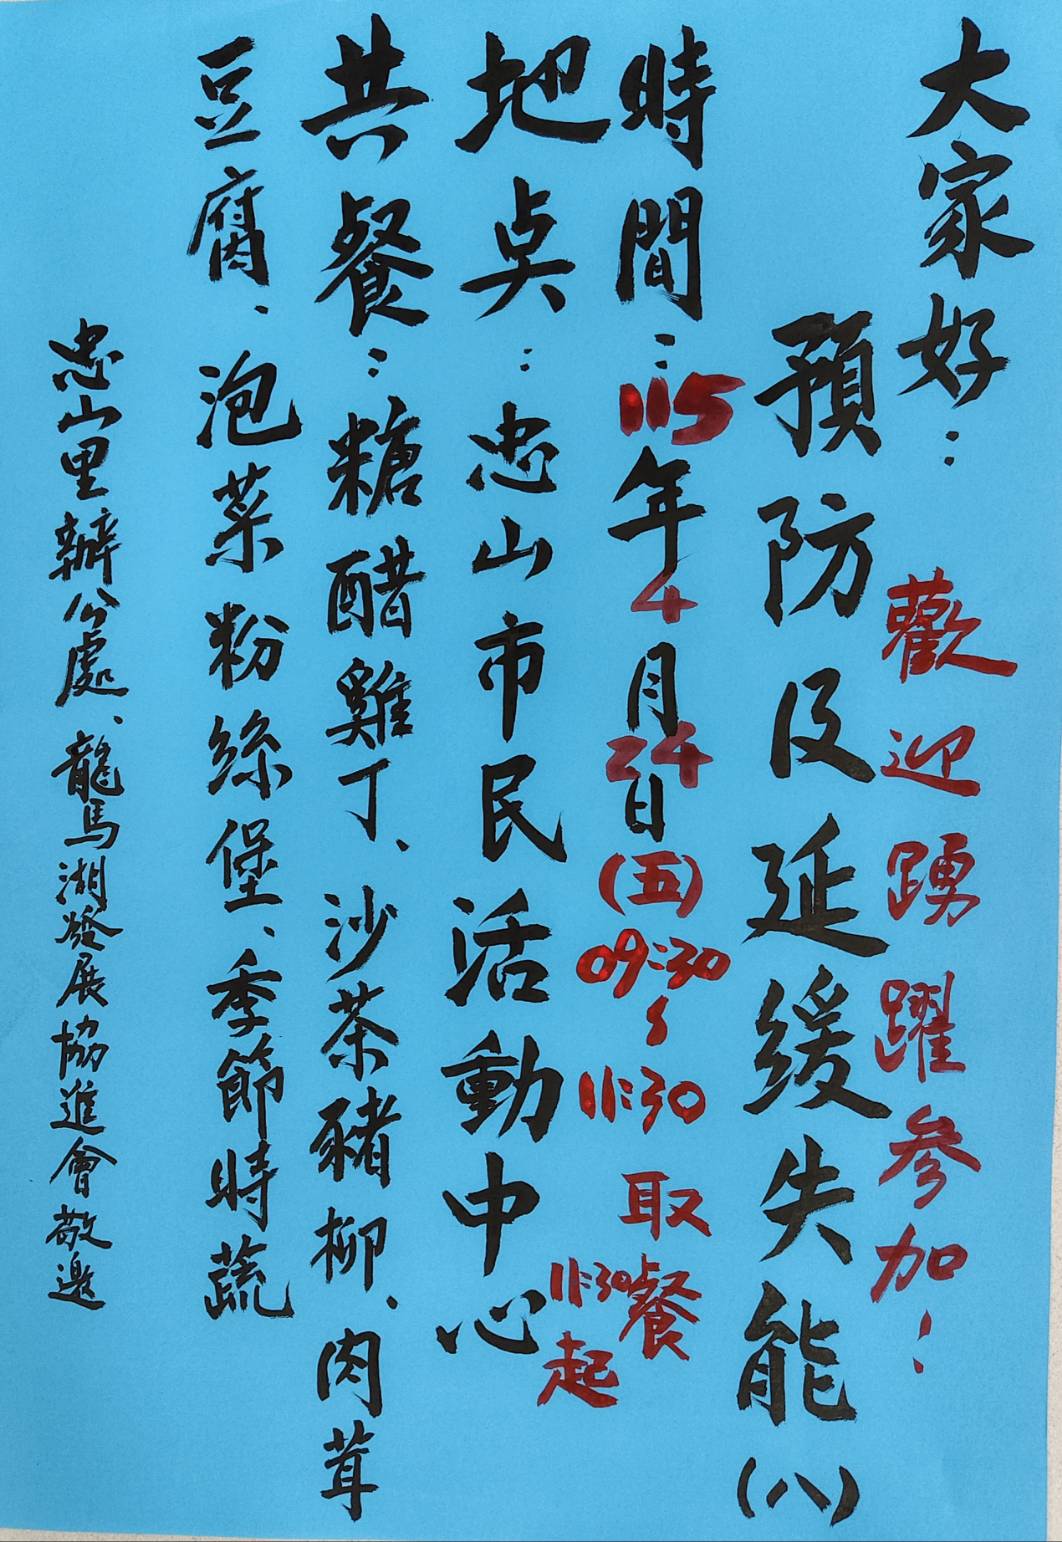 大家好：
歡迎踴躍參加！
預防及延緩失能(八)
時間：115年4月24日(五)09:30~11:30 取餐
11:30起
地奌：忠山市民活動中心
共餐：糖醋雞丁、沙茶豬柳、肉茸
豆腐、泡菜粉絲堡、季節時蔬
忠山里辦公處、龍馬湖發展協進會敬邀